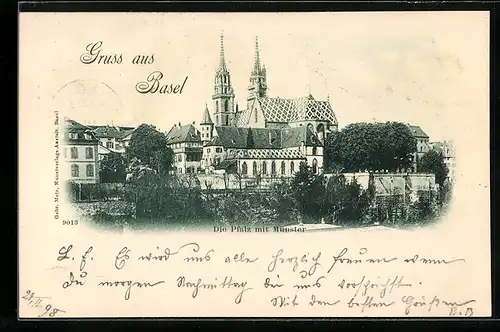 Gruss aus
Basel
Gebr. Metz, Kunstverlags-Anstalt, Basel
9013
Die Pfalz mit Münster
L. F. Es wird uns alle herzlich freuen wenn
Du morgen Nachmittag bei uns vorsprichst
Mit den besten Grüßen
98